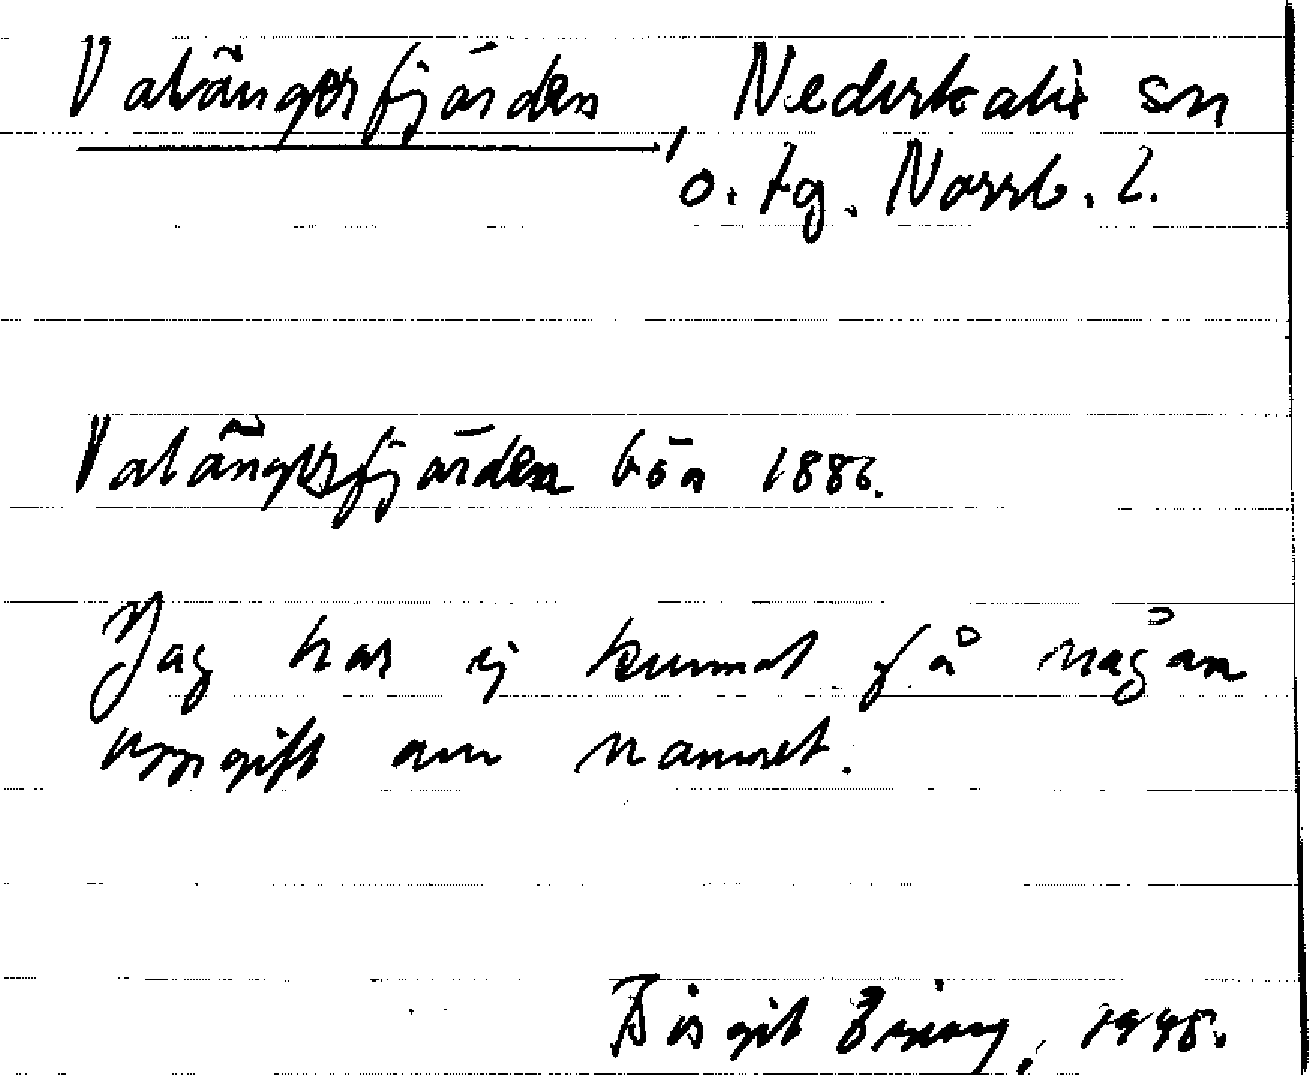 Valångersfjärden, Nederkalix sn
o. tg. Norrb. l.
Valångersfjärden bön 1886.
Jag har ej kunnat få någon
uppgift om namnet.
Birgit 1948.